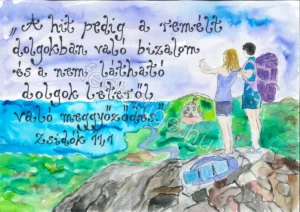 „A hit pedig a remélt
dolgokban való bizalom
és a nem látható
dolgok létéről
való meggyőződés."
Zsidók 11,1